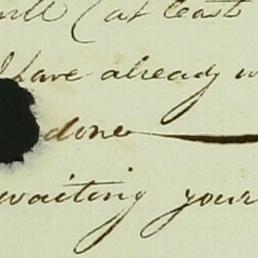 (at least
have already
done
waiting your